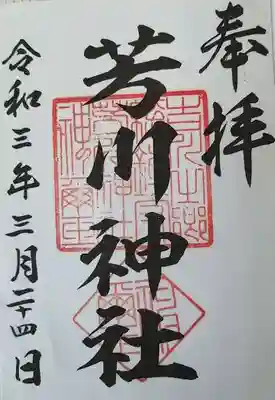 奉拝
芳川神社
令和三年三月二十四日